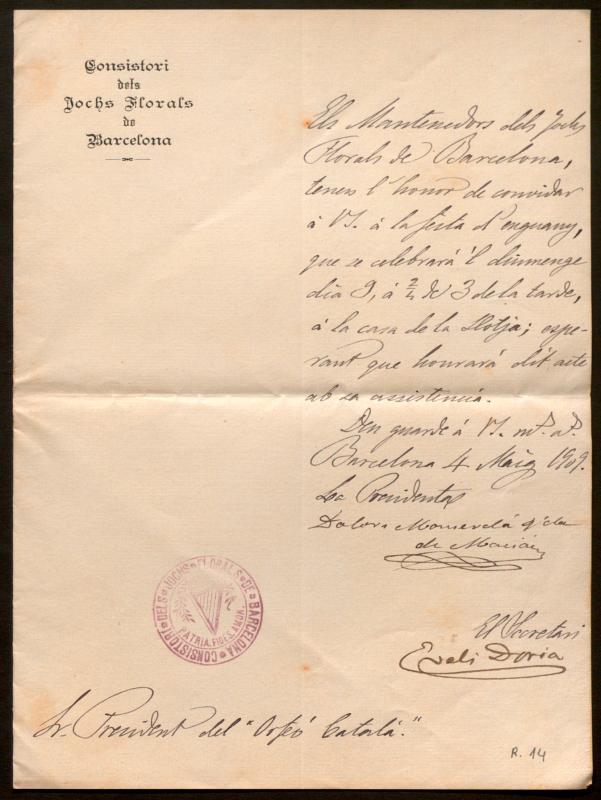 Consistori
dels
Jochs Florals
de
Barcelona
Els Mantenedors dels Jochs
Florals de Barcelona,
tenen l' honor de convidar
á VS. á la festa d' enguany,
que se celebrará 'l diumenge
dia 9, á 2/4 de 3 de la tarde,
á la casa de la Llotja; espe-
rant que honrará dit acte
ab sa assistencia.
Deu guarde á VS. m.s a.s
Barcelona 4 Maig 1909.
La Presidenta
Dolors Monserdá
de Maciá
El Secretari
Eveli Doria
CONSISTORI DELS JOCHS FLORALS DE BARCELONA
PATRIA, FIDES, AMOR.
Sr. President del "Orfeó Catalá."
R. 14